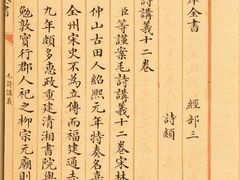 全書 經部三
詩類
毛詩講義十二卷
臣等謹案毛詩講義十二卷宋林
仲山古田人紹熙元年特奏名嘉
全州宋史不為立傳而福建通志
九年頗多惠政重建清湘書院與
勉敦實行郡人祀之柳宗元廟則
書
毛詩講義